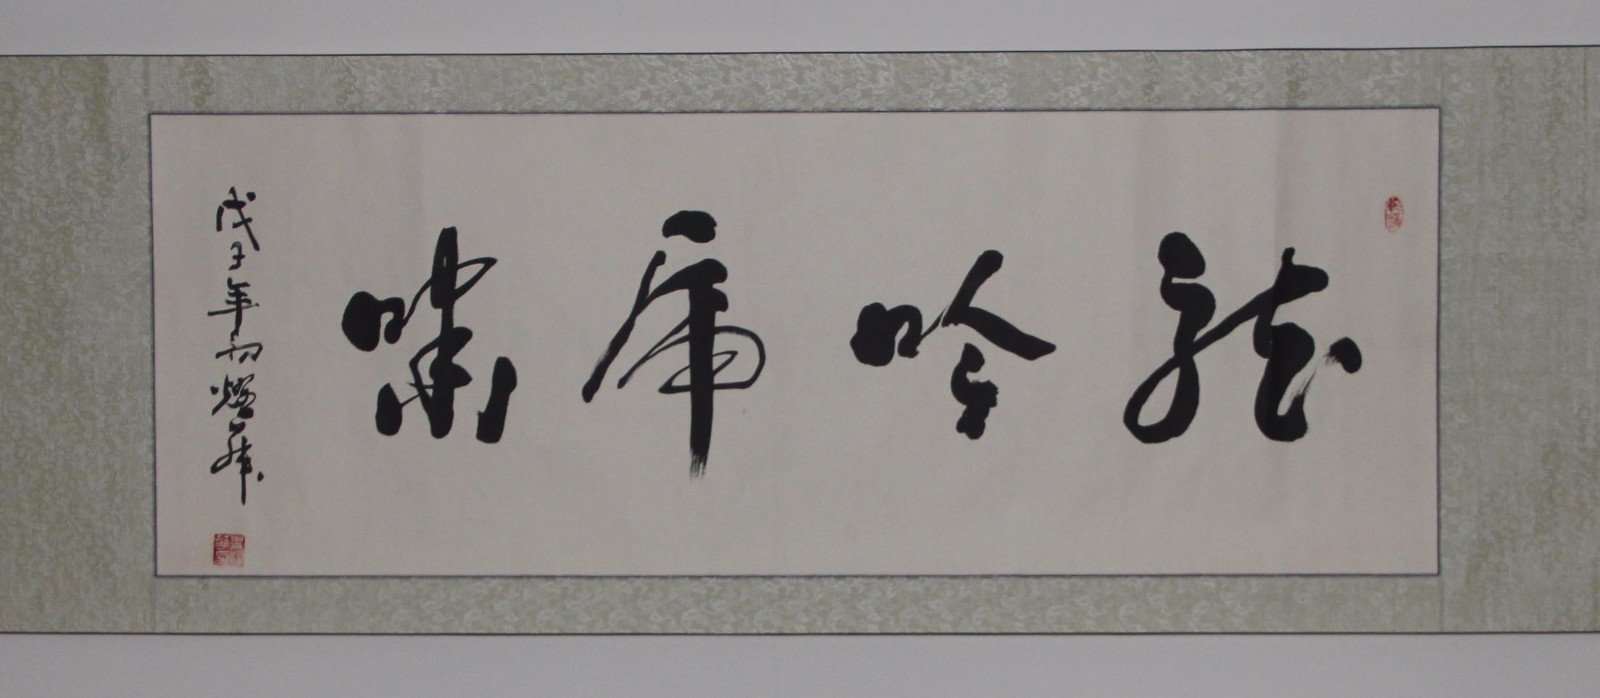 龍吟虎嘯
戊子年初耀華